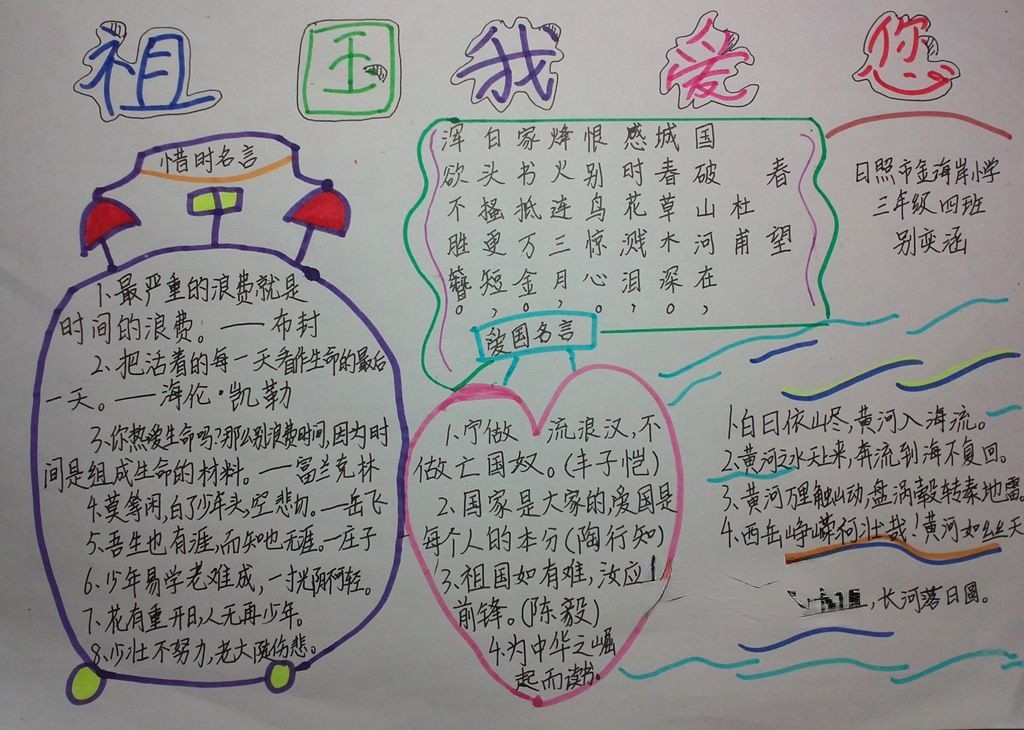 祖国我爱您
惜时名言
1、最严重的浪费就是
时间的浪费。——布封
2、把活着的每一天看作生命的最后
一天。——海伦·凯勒
3、你热爱生命吗?那么别浪费时间,因为时
间是组成生命的材料。—富兰克林
4、莫等闲,白了少年头,空悲切。—岳飞
5、吾生也有涯,而知也无涯。—庄子
6、少年易学老难成,一寸光阴不可轻。
7、花有重开日,人无再少年。
8、少壮不努力,老大徒伤悲。
春望
杜甫
国破山河在,
城春草木深。
感时花溅泪,
恨别鸟惊心。
烽火连三月,
家书抵万金。
白头搔更短,
浑欲不胜簪。
日照市金海岸小学
三年级四班
别奕涵
爱国名言
1、宁做 流浪汉,不
做亡国奴。(丰子恺)
2、国家是大家的,爱国是
每个人的本分(陶行知)
3、祖国如有难,汝应
前锋。(陈毅)
4、为中华之崛
起而读书。
1、白日依山尽,黄河入海流。
2、黄河之水天上来,奔流到海不复回。
3、黄河万里触山动,盘涡毂转秦地雷
4、西岳峥嵘何壮哉!黄河如丝天
,长河落日圆。